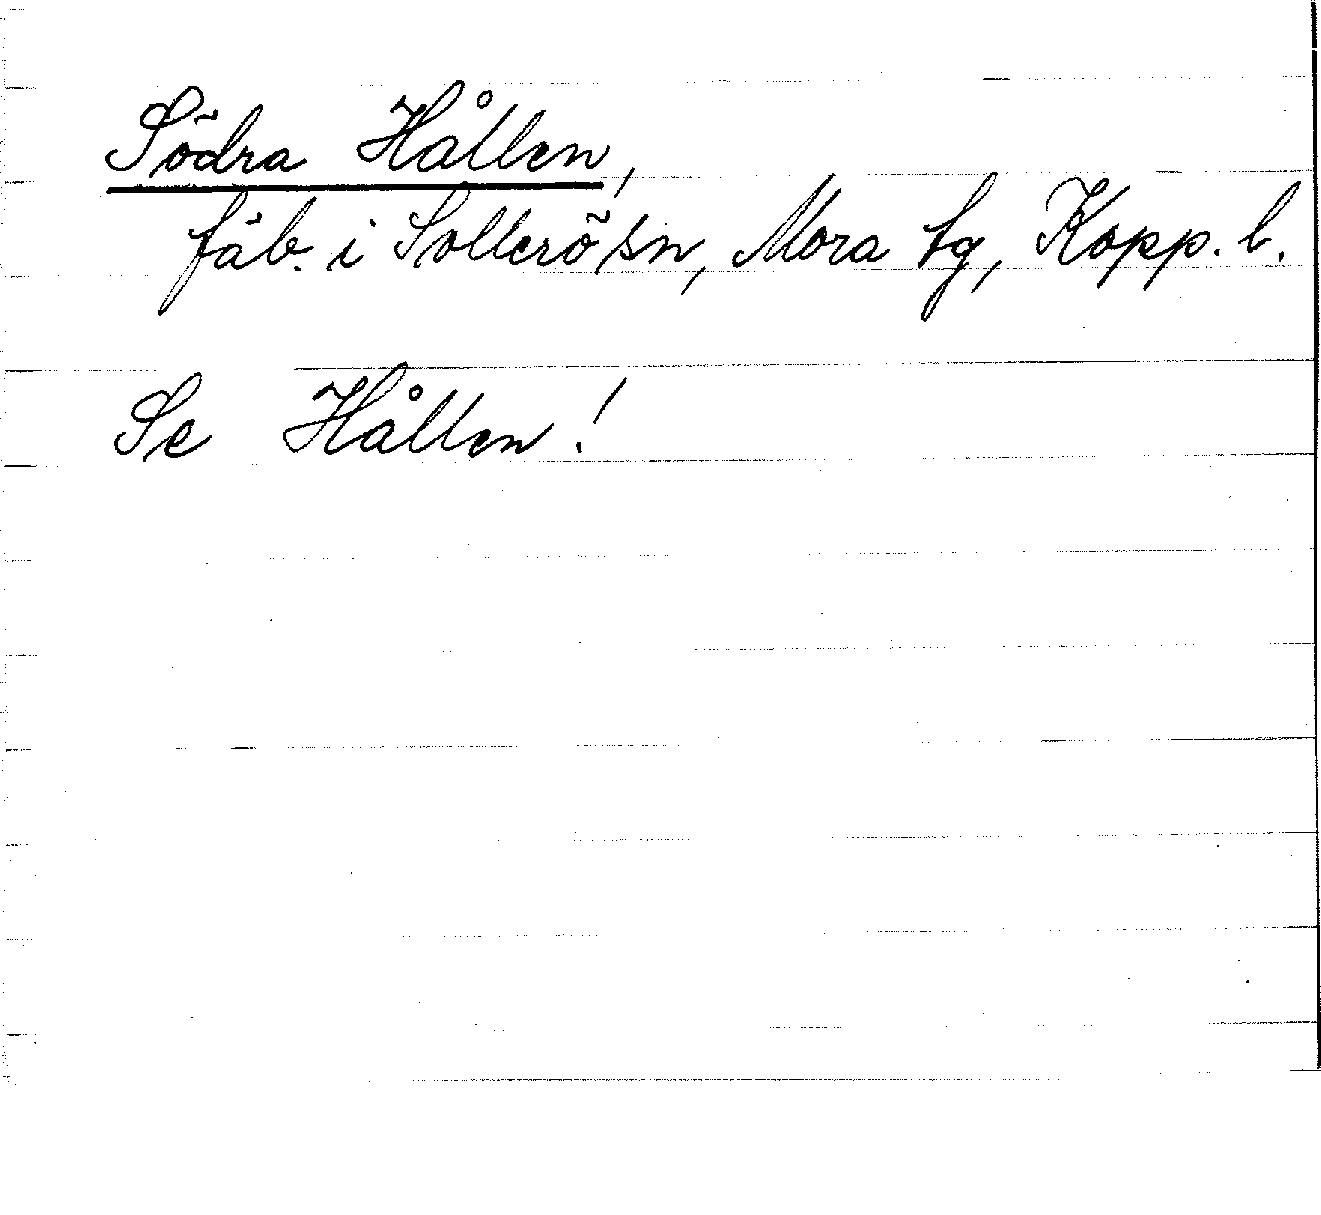 Södra Hållen,
fäb. i Sollerö sn, Mora tg, Kopp. l.
Se Hållen!